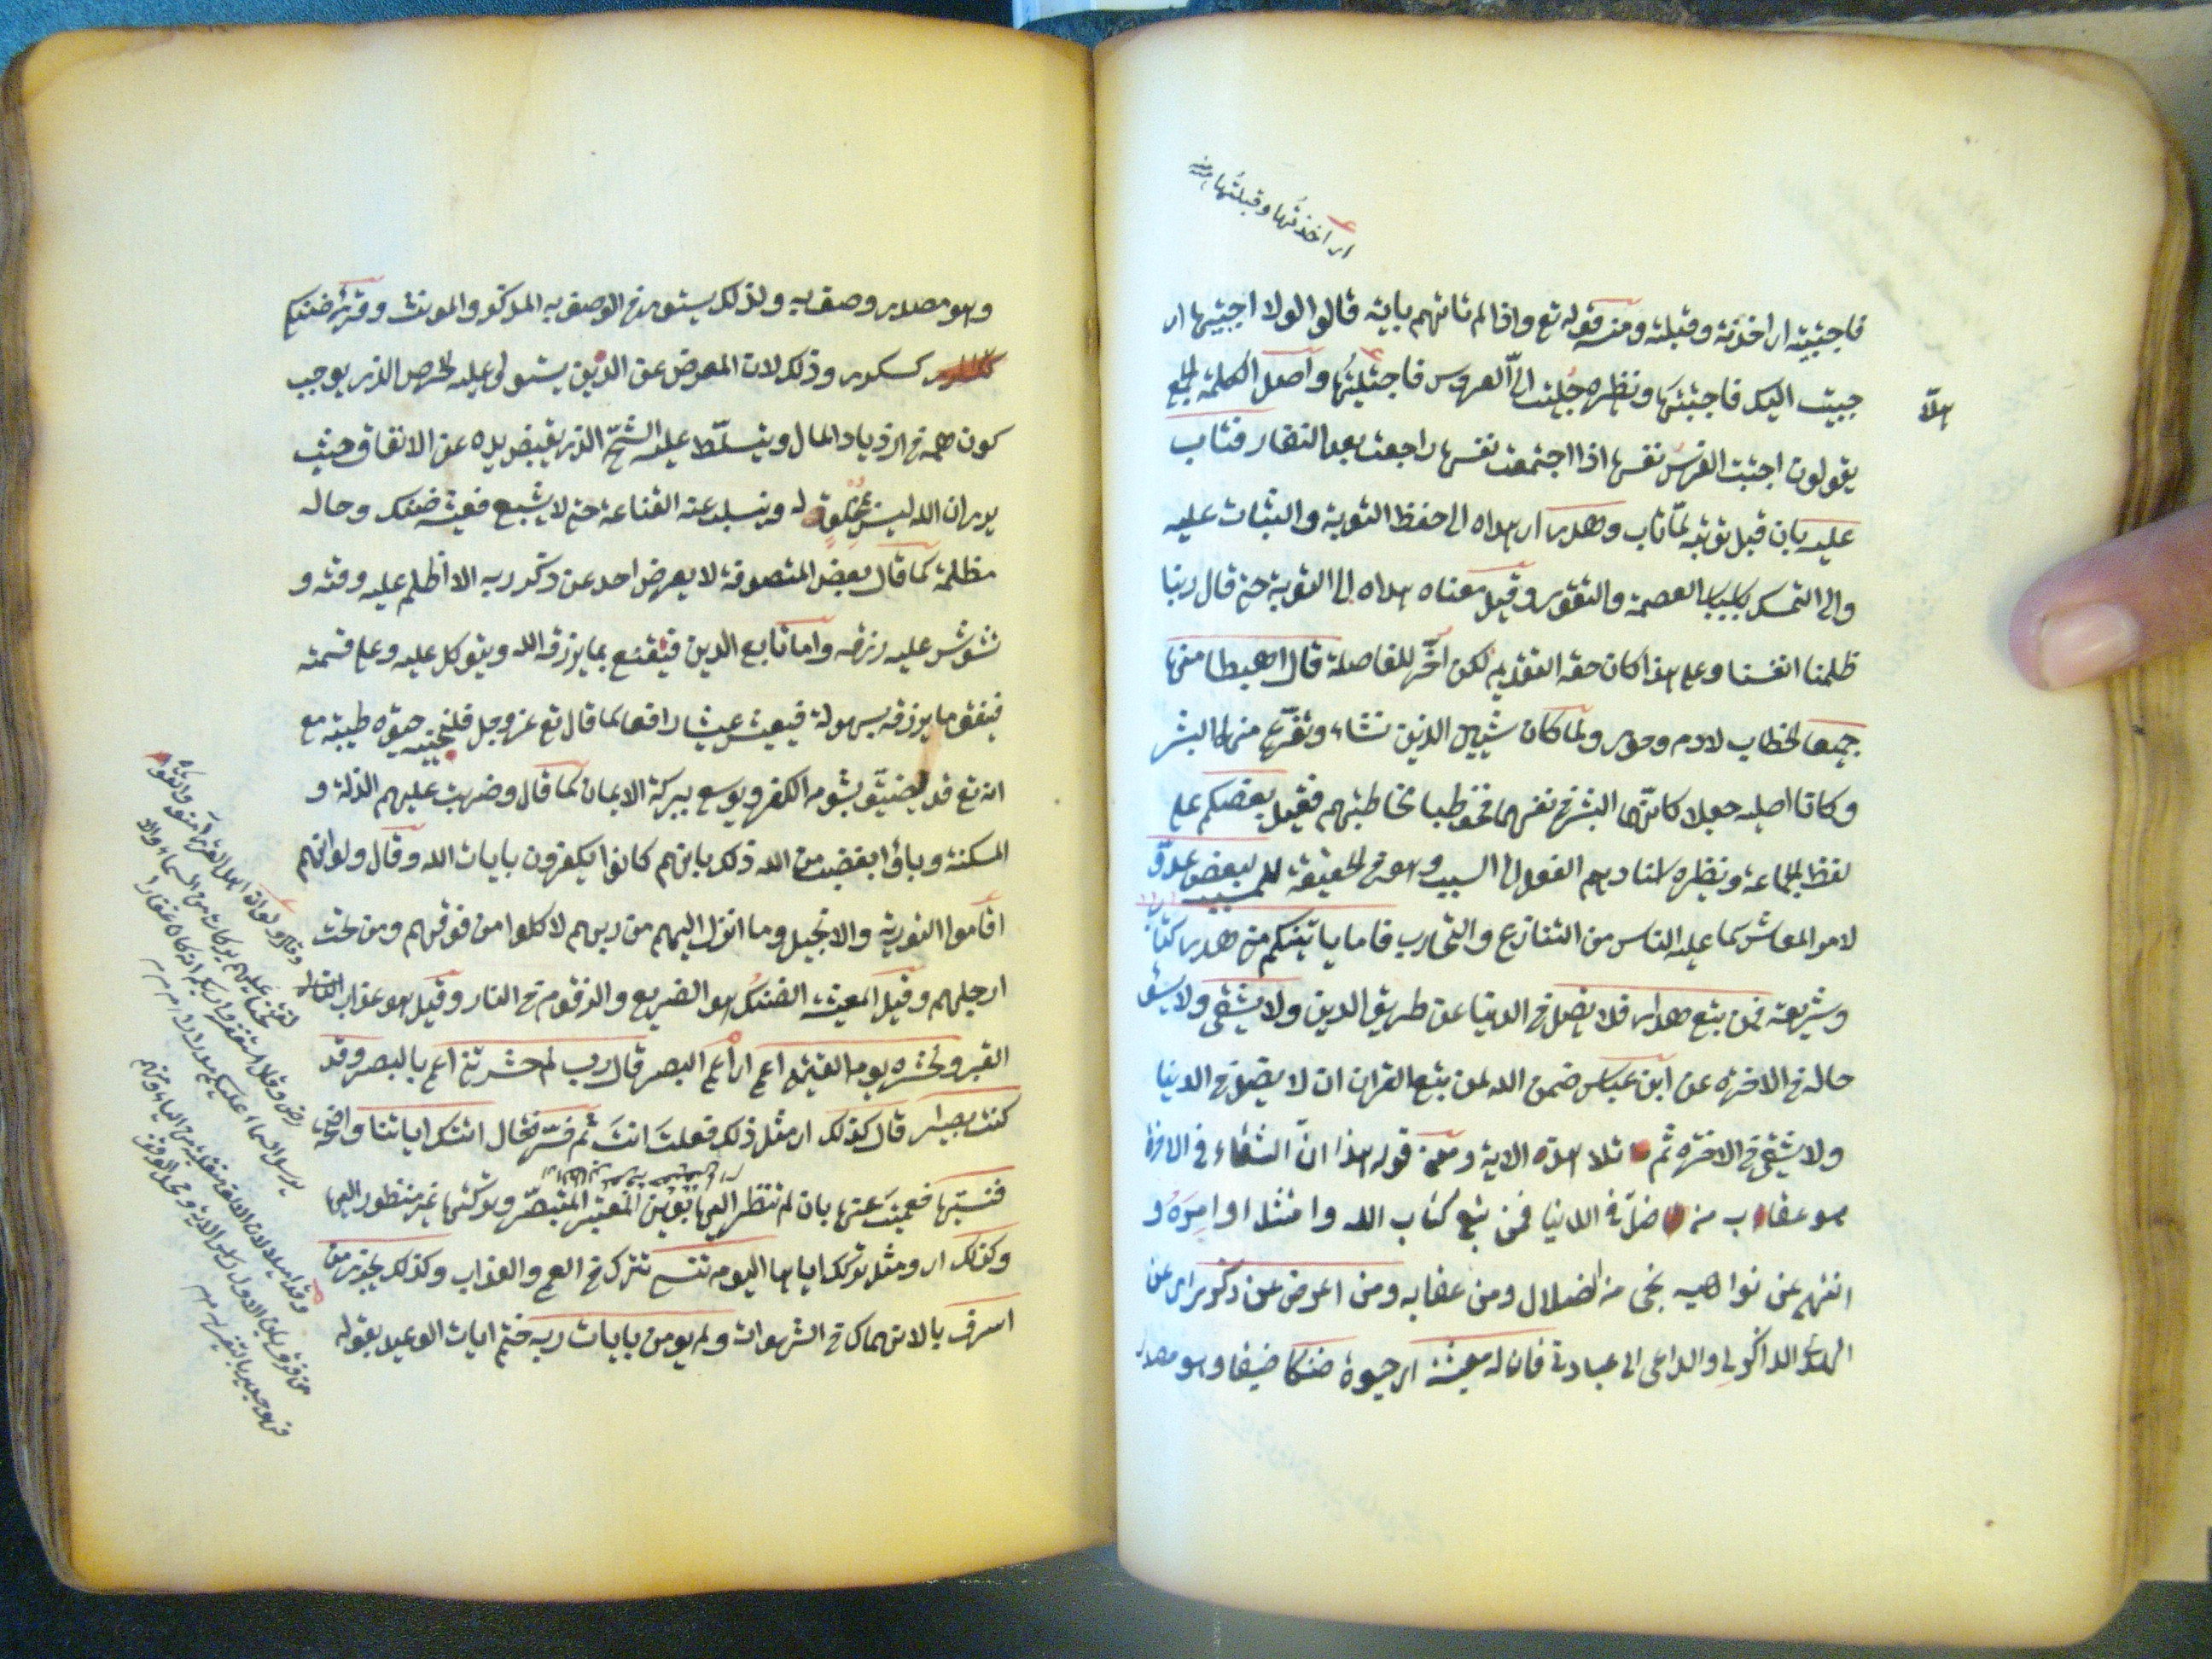 ای اخذتُها وقبلتُها منه
فاجتبيته ای اخذته وقبلته ومنه قوله تع واذا لم تاتهم باية قالوا لولا اجتبيتها ای
جبيت اليك فاجتبيتها ونظيره جُليت الیّ العروس فاجتليتُها واصل الكلمة الجمع
يقولون اجتبت الفرس نفسها اذا اجتمعت نفسها راجعة بعد النفار فتاب
عليه بان قبل توبته لمّا تاب وهدی ای هداه الى حفظ التوبة والثبات عليه
والى التمسك باسباب العصمة والتقوی وقيل معناه هداه الى التوبة حتى قال ربنا
ظلمنا انفسنا وعلى هذا كان حقه التقديم لكن اخّر للفاصلة قال اهبطا منها
جميعا الخطاب لادم وحوی ولما كان شيين الذين نشاء وتفرّع منهما البشر
وكانا اصليه جعلا كانّهما البشر فی نفسهما فخوطبا مخاطبتهم فقيل بعضكم على
لفظ الجماعة ونظيره اسنادهم الفعل الى السبب وهو فی الحقيقة للمسبب لبعض عدوّ
لامر المعاش كما عليه الناس من التنازع والتحارب فاما ياتينكم منی هدی كتاب
وشريعة فمن يتبع هدای فلا يضل فی الدنيا عن طريق الدين ولا يشقی ولا يشق
حاله فی الاخرة عن ابن عباس ضمن الله لمن يتبع القران ان لا يضل فی الدنيا
ولا يشقی فی الاخرة ثم تلا هذه الاية ومعنی قوله هذا انّ الشقاء فی الاخرة
هو عقاب من ضلّ فی الدنيا فمن يتبع كتاب الله وامتثل اوامره و
انتهى عن نواهيه نجی من الضلال ومن عقابه ومن اعرض عن ذكری ای عن
الهدی الذاكر لی والداعی الى عبادتی فان له معيشة ای حيوة ضنكا ضيقا وهو مصدر
وهو مصدر وصف به ولذلك يستوی فی الوصف به المذكر والمونث وقرئ ضنكی
كسكری وذلك لان المعرض عن الدين يستولی عليه الحرص الذی يوجب
كون همه فی ازدياد المال ويتسلّط عليه الشحّ الذی يقبض يده عن الانفاق حيث
يری ان الله ليس بمُخلِفٍ له ويسلب عنه القناعة حتى لا يشبع فعيشه ضنك وحاله
مظلمة كما قال بعض المتصوفة لا يعرض احد عن ذكر ربه الا اظلم عليه وقته و
تشوش عليه رزقه واما تابع الدين فيقنع بما يرزقه الله ويتوكل عليه وعلى قسمته
فينفق ما يرزقه بسهولة فيعيش عيشا رافعا كما قال تع عز وجل فلنحيينه حيوة طيبة مع
انه تع قد يضيّق بشوم الكفر ويوسع ببركة الايمان كما قال وضربت عليهم الذلة و
المسكنة وباؤا بغضب من الله ذلك بانهم كانوا يكفرون بايات الله وقال ولو انهم
اقاموا التورية والانجيل وما انزل اليهم من ربهم لاكلوا من فوقهم ومن تحت
ارجلهم وقيل المعيشة الضنك هو الضريع والزقوم فی النار وقيل هو عذاب
القبر ونحشره يوم القيمة اعمی ای اعمی البصر قال رب لم حشرتنی اعمی بالبصر وقد
كنت بصيرا قال كذلك ای مثل ذلك فعلتَ انتَ ثم فسّر فقال اتتك اياتنا واضحة
فنسيتها فعميتَ عنها بان لم تنظر اليها بعين المعتبر المتبصّر وتركتها غير منظور اليها
وكذلك ای ومثل تركك اياها اليوم تنسی تترك فی العمی والعذاب وكذلك نجزی من
اسرف بالانهماك فی الشهوات ولم يومن بايات ربه ختم ايات الوعيد بقوله
وقال ولو انّ اهل القری امنوا واتقوا
لفتحنا عليهم بركات من السماء والا
رض وقال استغفروا ربكم انه كان غفارا
يرسل السماء عليكم مدرارا